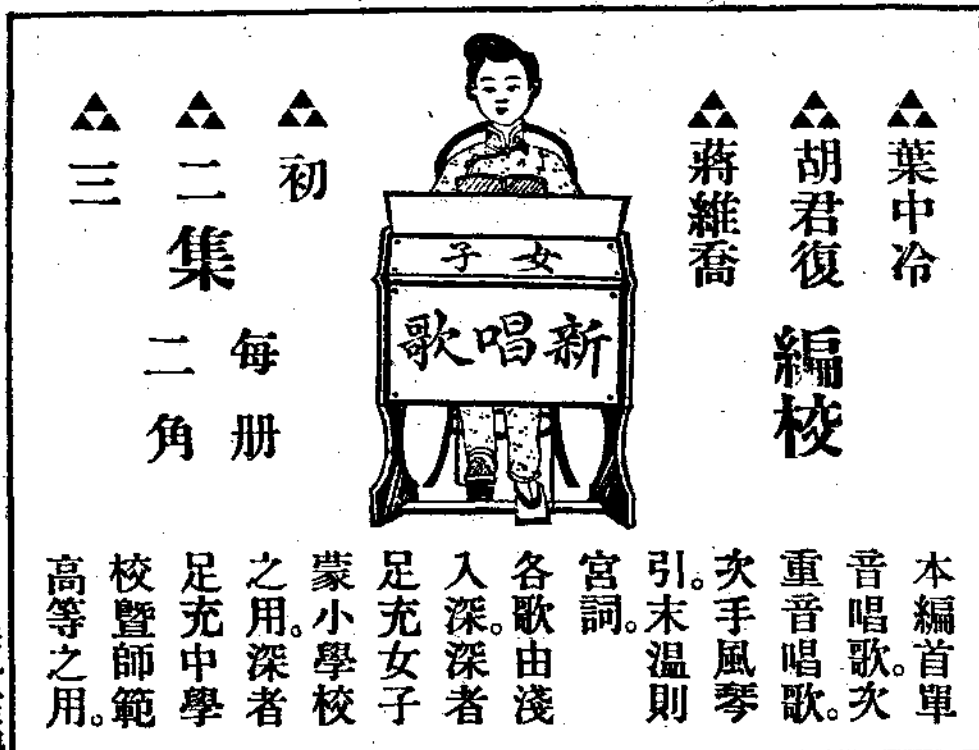 葉中冷
胡君復
蔣維喬
編校
女子
新唱歌
初
二
三
集
每册
二角
本編首單
音唱歌。次
重音唱歌。
次手風琴
引。末溫則
宮詞。
各歌由淺
入深。深者
足充女子
蒙小學校
之用。深者
足充中學
校暨師範
高等之用。